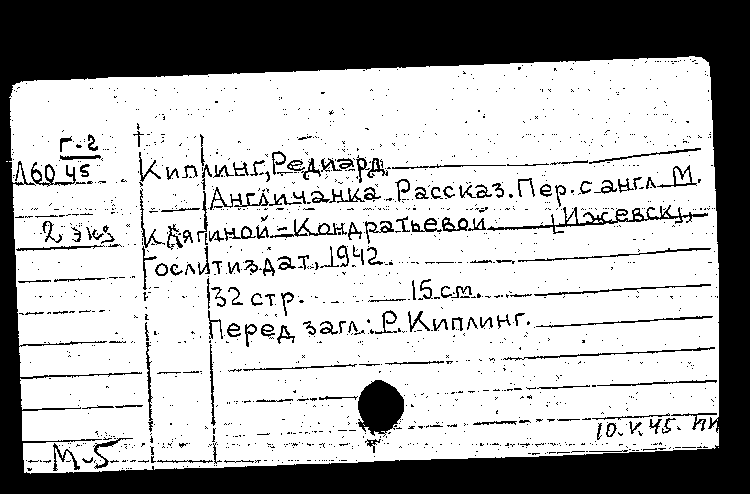 Г-2
Л60 45
Киплинг, Редиард.
Англичанка. Рассказ. Пер. с англ. М.
2 экз Клягиной-Кондратьевой. [Ижевск],
Гослитиздат, 1942.
32 стр. 15 cm.
Перед загл.: Р. Киплинг.
10.V.45.
М-5